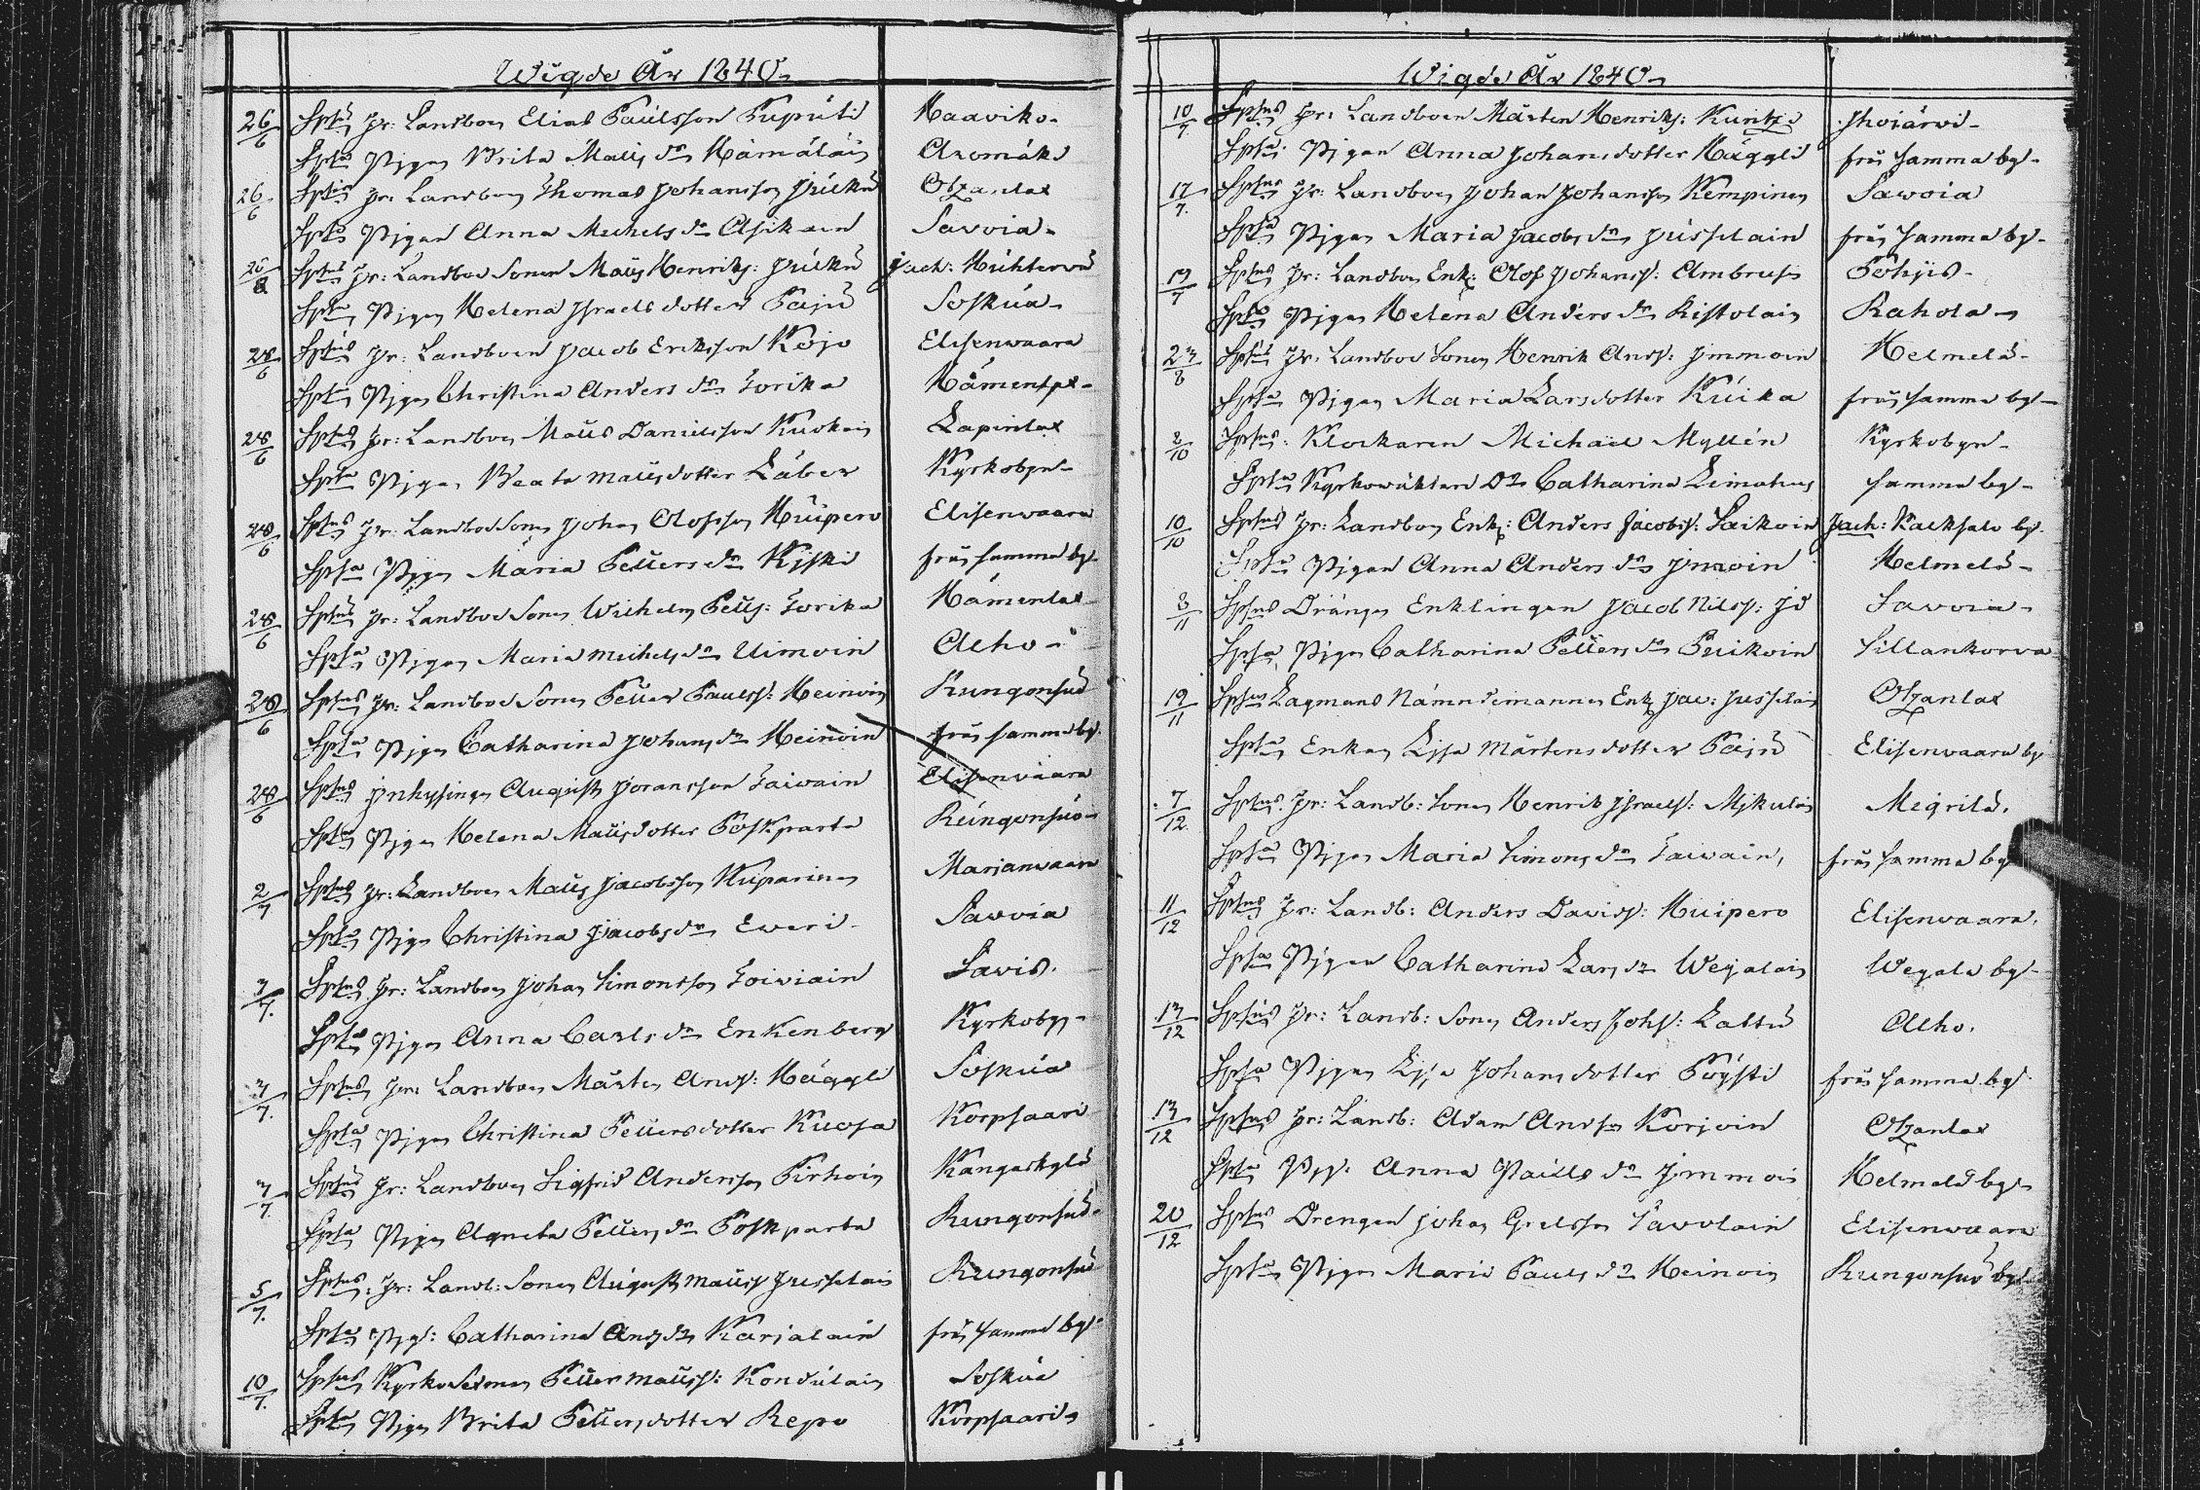 Wigde År 1840
26/6 Spns fr: Landbon Elias Paulsson Puputti Haaviko
Spta Pigan Brita Matts dr Hämäläin Aromäki
26/6 Spns fr: Landbon Thomas Johansson Otzanlax
Spta Pigan Anna Michels dr Asikain Savvia
fr: Landbo Sonen Matts Henriks: Jack:
Spta Pigan Helena Israels dotter Paju Soskua
28/6 Spns fr: Landboen Jacob Eriksson Kojo Elisenvaara
Spta Pigan Christina Anders dr Torika Hämentax
28/6 Spns fr: Landbon Matts Danielsson Lapinlax
Spta Pigan Beata Matts dotter Käber Kyrkobyn
28/6 Spns fr: Landbo Sonen Johan Olofsson Huipero Elisenvaara
Spta Pigan Maria Petters dr Kiski från samma by
28/6 Spns fr: Landbo Sonen Wilhelm Petts: Torika Hämenlax
Spta Pigan Maria Michels dr Uimoin Alho
28/6 Spns fr: Landbo Sonen Petter Paulss: Heinoin Rungonsuo
Spta Pigan Catharina Johans dr Heinoin från samma by
28/6 Spns Inhysingen August Göransson Taiwain Elisenvaara
Spta Pigan Helena Matts dotter Poskparta Rungonsuo
2/7 Spns fr: Landbon Matts Jacobsson Kuparinen Marjanvaara
Spta Pigan Christina Jacobs dr Eweri Savvia
3/7 Spns fr: Landbon Johan Simonsson Toiviain Savia
Spta Pigan Anna Carls dr Enkenberg Kyrkoby
3/7 Spns fr: Landbon Mårten Ands: Häggli Soskua
Spta Pigan Christina Petters dotter Kuosa Korpsaari
3/7 Spns fr: Landbon Sigfrid Andersson Pirhoin Kangaskylä
Spta Pigan Agneta Petters dr Poskparta Rungonsuo
5/7 Spns fr: Landb: Sonen August Matts: Jusselain Rungonsuo
Spta Pig: Catharina Ands dr Karjalain från samma by
10/7 Spns Petter Matts: Kondulain Soskua
Spta Pigan Brita Petters dotter Repo Korpsaari
Wigde År 1840
10/7 Spns fr: Landboen Mårten Henriks: Kuntzi Ihojärvi
Spta Pigan Anna Johans dotter Häggli från samma by
17/7 Spns fr: Landbon Johan Johansson Kempinen Savvia
Spta Pigan Maria Jacobs dr Jusselain från samma by
19/7 Spns fr: Landbon Enk: Olof Johans: Ambrusin Pohjis
Spta Pigan Helena Anders dr Ristolain Rahola
23/8 Spns fr: Landbo Sonen Henrik Ands: Immoin Helmelä
Spta Pigan Maria Lars dotter Kuika från samma by
2/10 Spns: Klockaren Michael Myllén Kyrkobyn
Spta Kyrkowäktare Dr Catharina Limatius samma by
10/10 Spns fr: Landbon Enk: Anders Jacobs: Saikoin Jack: by
Spta Pigan Anna Anders dr Immoin Helmelä
8/11 Spns Drängen Enklingen Jacob Nils: Savvia
Spta Pigan Catharina Petters dr Puikoin Sillankorva
19/11 Spns Lagmans Nämndemannen Enk Jac: Jusselain Otzanlax
Spta Enkan Lisa Mårtens dotter Paju Elisenvaara by
7/12 Spns fr: Landb: Sonen Henrik Israels: Mikulain Megrilä
Spta Pigan Maria Simons dr Taiwain, från samma by
11/12 Spns fr: Landb: Anders Davids: Huipero Elisenvaara.
Spta Pigan Catharina Lars dr Wegalain Wegala by
13/12 Spns fr: Landb: Sonen Anders Johs: Lattu Alho.
Spta Pigan Lisa Johans dotter Pöysti från samma by
13/12 Spns fr: Landb: Adam Andssn Korjoin Otzanlax
Spta Pig: Anna Paulls dr Immoin Helmelä by
20/12 Spns Drengen Johan Grelsson Savolain Elisenvaara
Spta Pigan Maria Pauls dr Heinoin Rungonsuo by